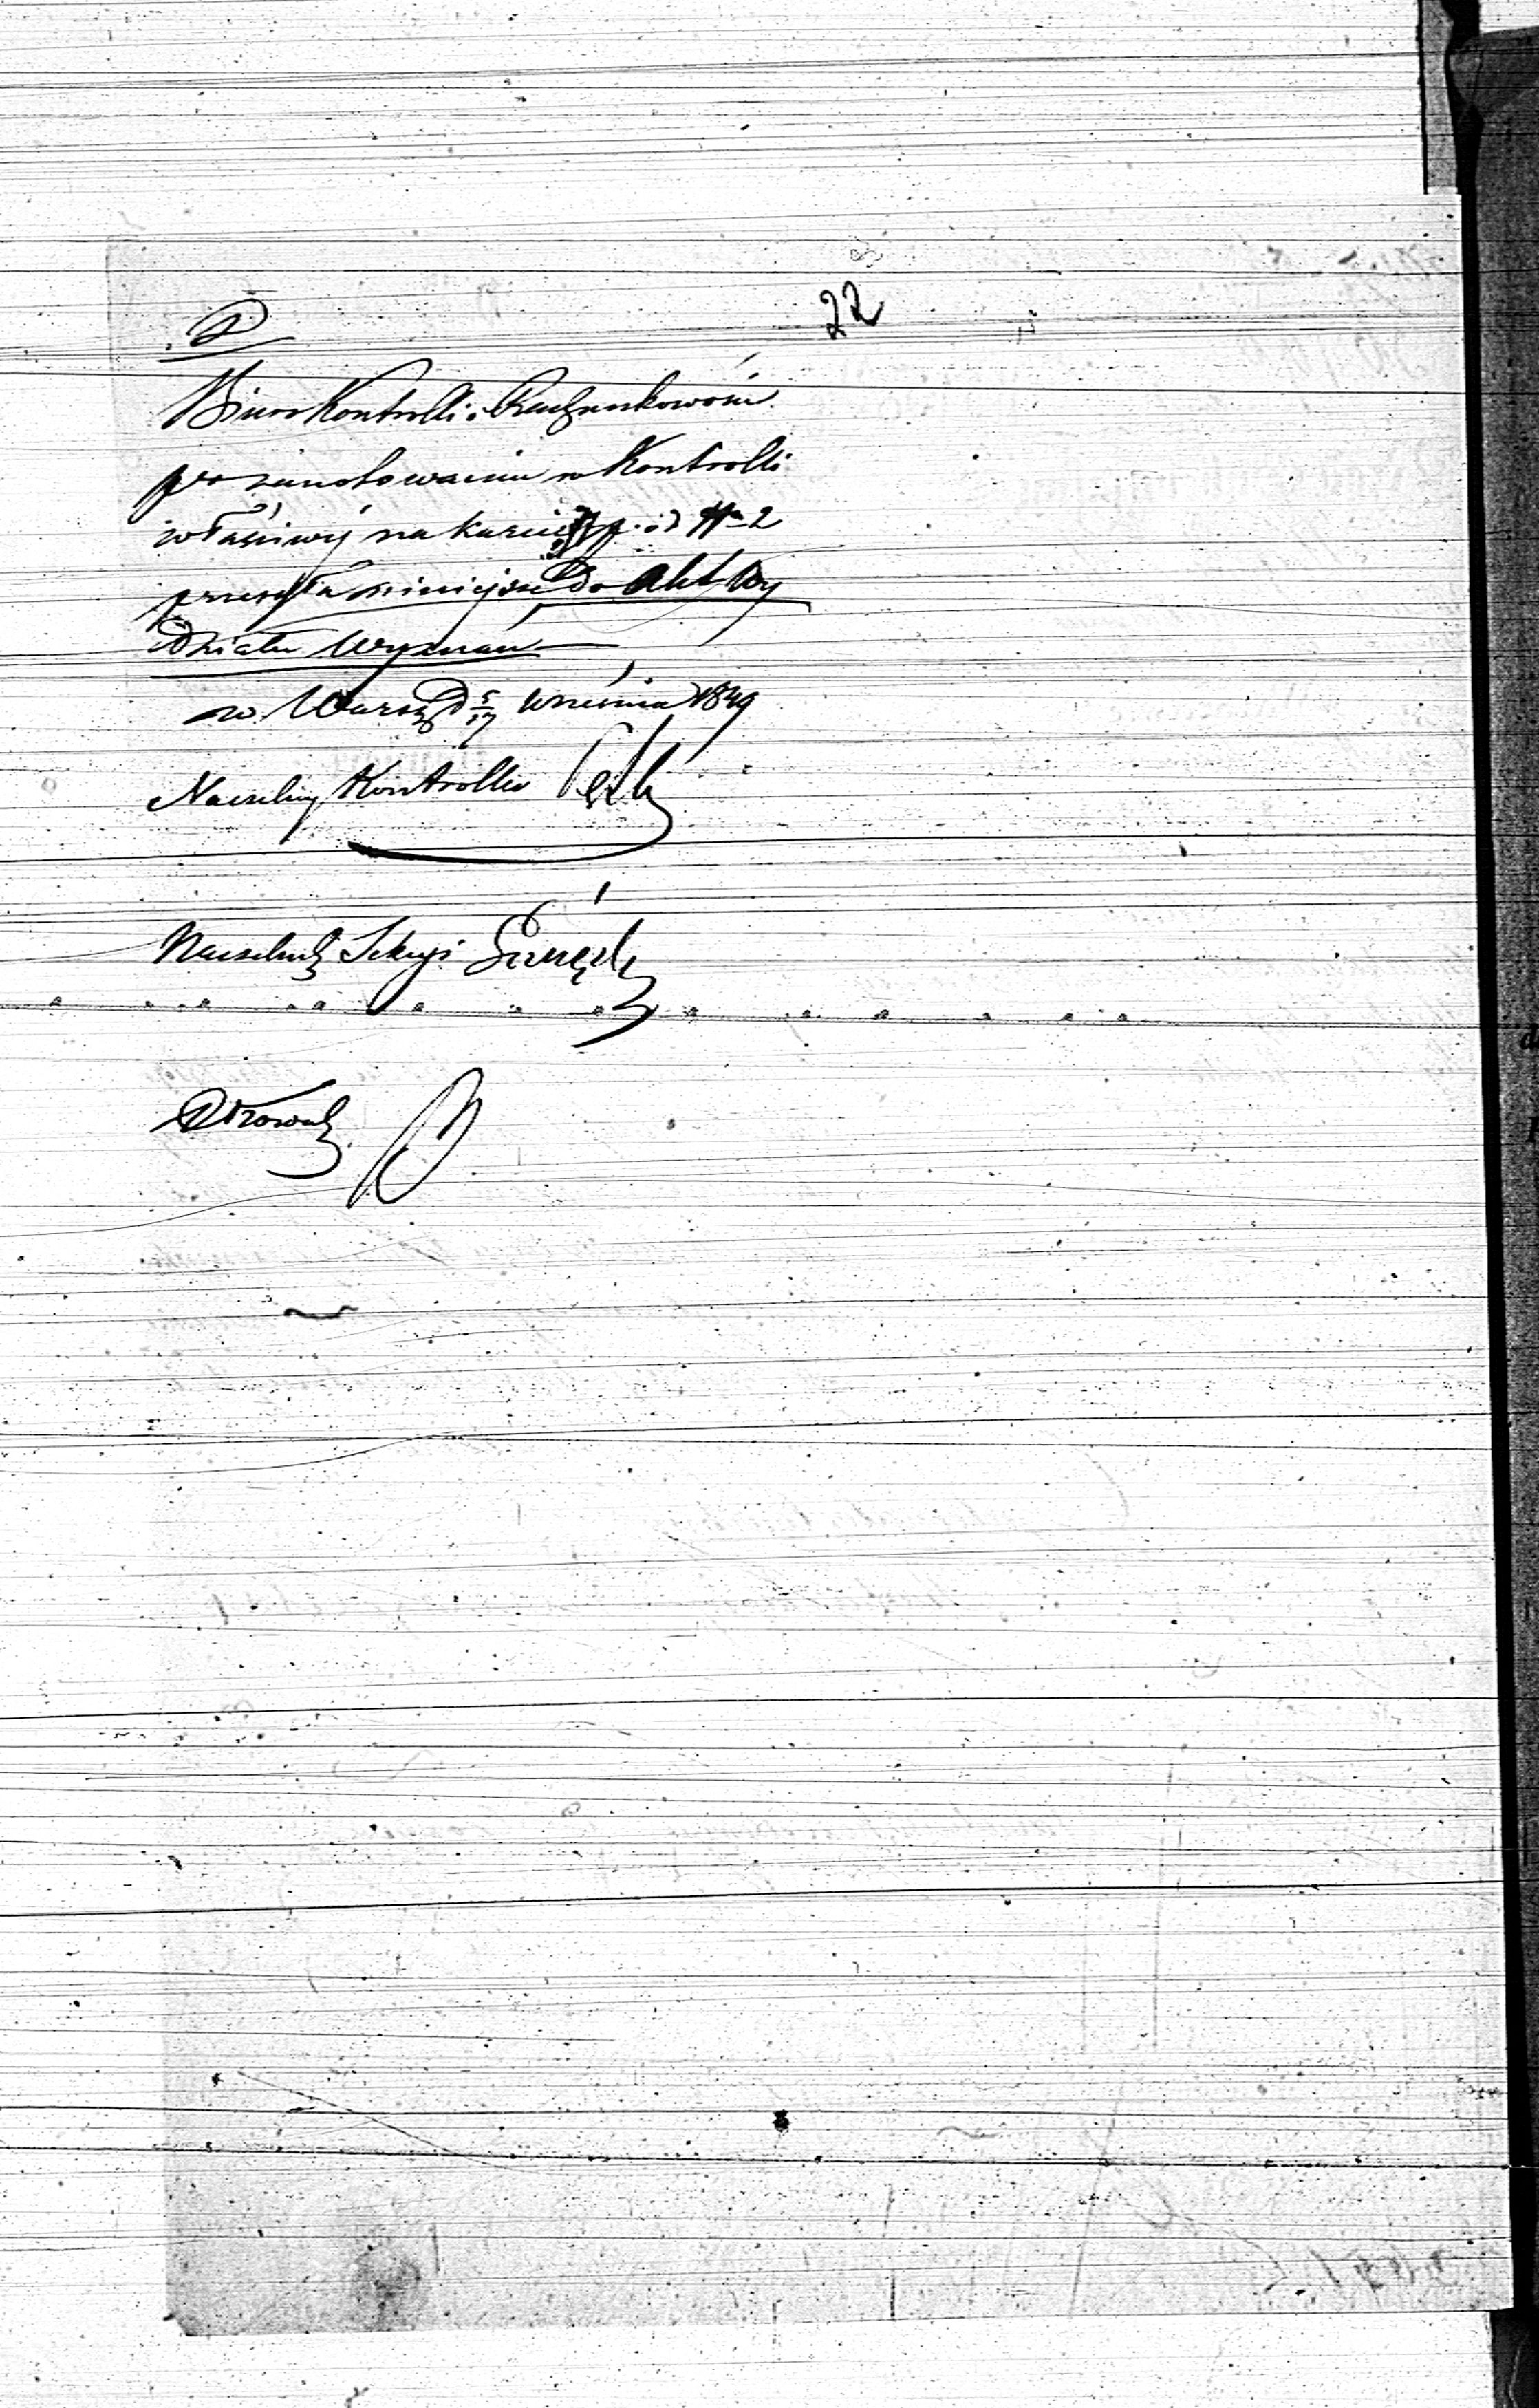 22
Biuro Kontrolli i Rachunkowości
po zanotowaniu w Kontrolli
właściwéj na karcie p. id N 2
przesyła niniejsze do Akt Wy
działu Wyznań
w Warsz d 5/17 Września 1849
Naczelny Kontroller
Naczelnik Sekcyi